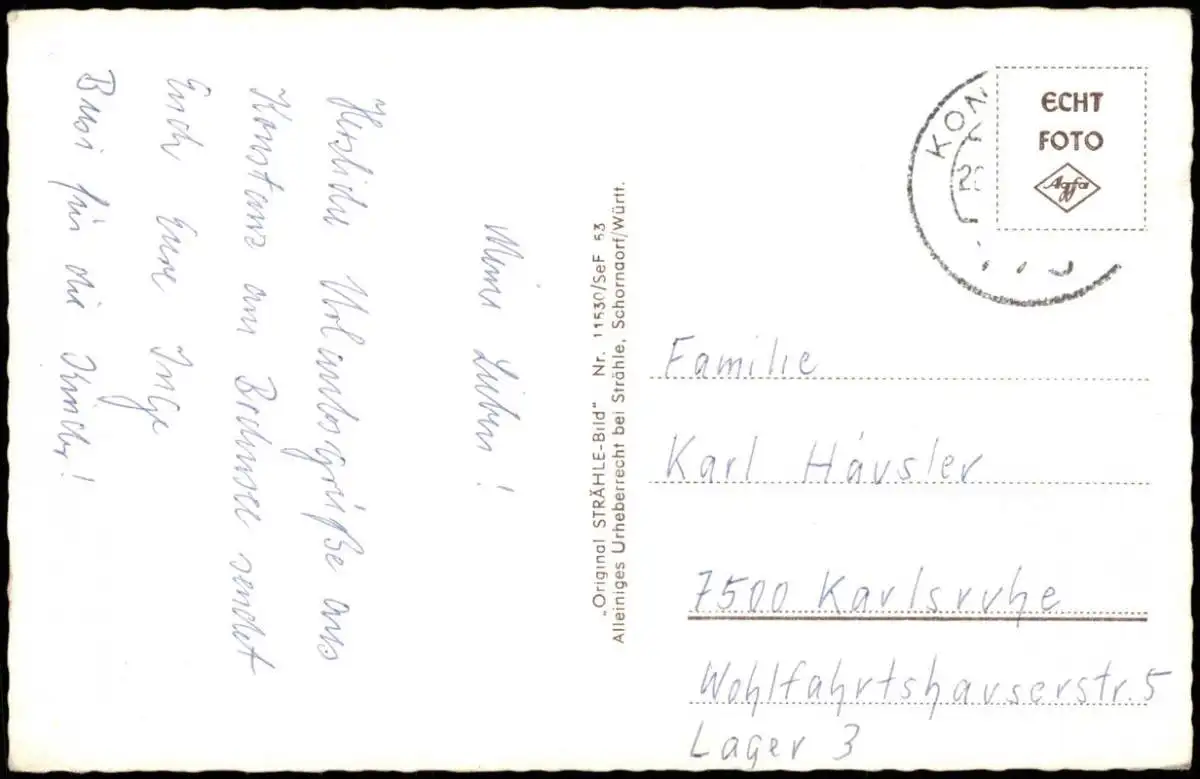 Meine Lieben!
Herzliche Urlaubsgrüße aus
Konstanz am Bodensee sendet
Euch Eure Inge
Bussi für die Kinder!
„Original STRÄHLE-Bild" Nr. 11530/SeF 53
Alleiniges Urheberrecht bei Strähle, Schorndorf/Württ.
KON
ECHT
FOTO
Agfa
Familie
Karl Häusler
7500 Karlsruhe
Wohlfahrtshauserstr. 5
Lager 3